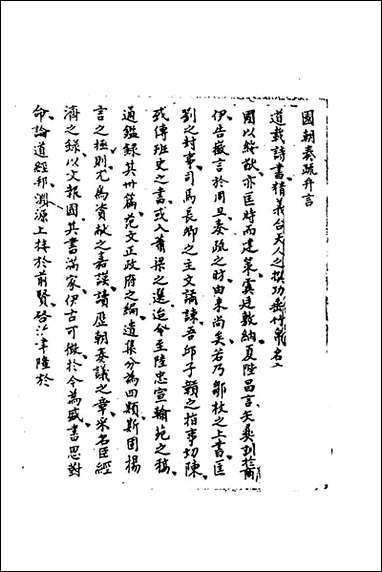 國朝奏疏弁言
道載詩書猶義合天人之撰功垂竹帛名
國以綏猷亦匡時而建策虞廷敷納夏陛昌言矢奏則於商
伊告徽言於周旦奏疏之昉由來尚矣若乃鄒枚之上書匡
劉之封事司馬長卿之主文譎諫吾邱子贛之指事切陳
或傳班史之書或入蕭梁之選迨今至陸忠宣翰苑之稿
通鑑錄其卅篇范文正政府之編遺集分為四類斯固揚
言之極則尤為資献之嘉謨讀歷朝奏議之章采名臣經
濟之錄以文報國其書滿家伊古可徵於今為盛書思對
命論道經邦淵源上接於前賢啟沙聿隆於